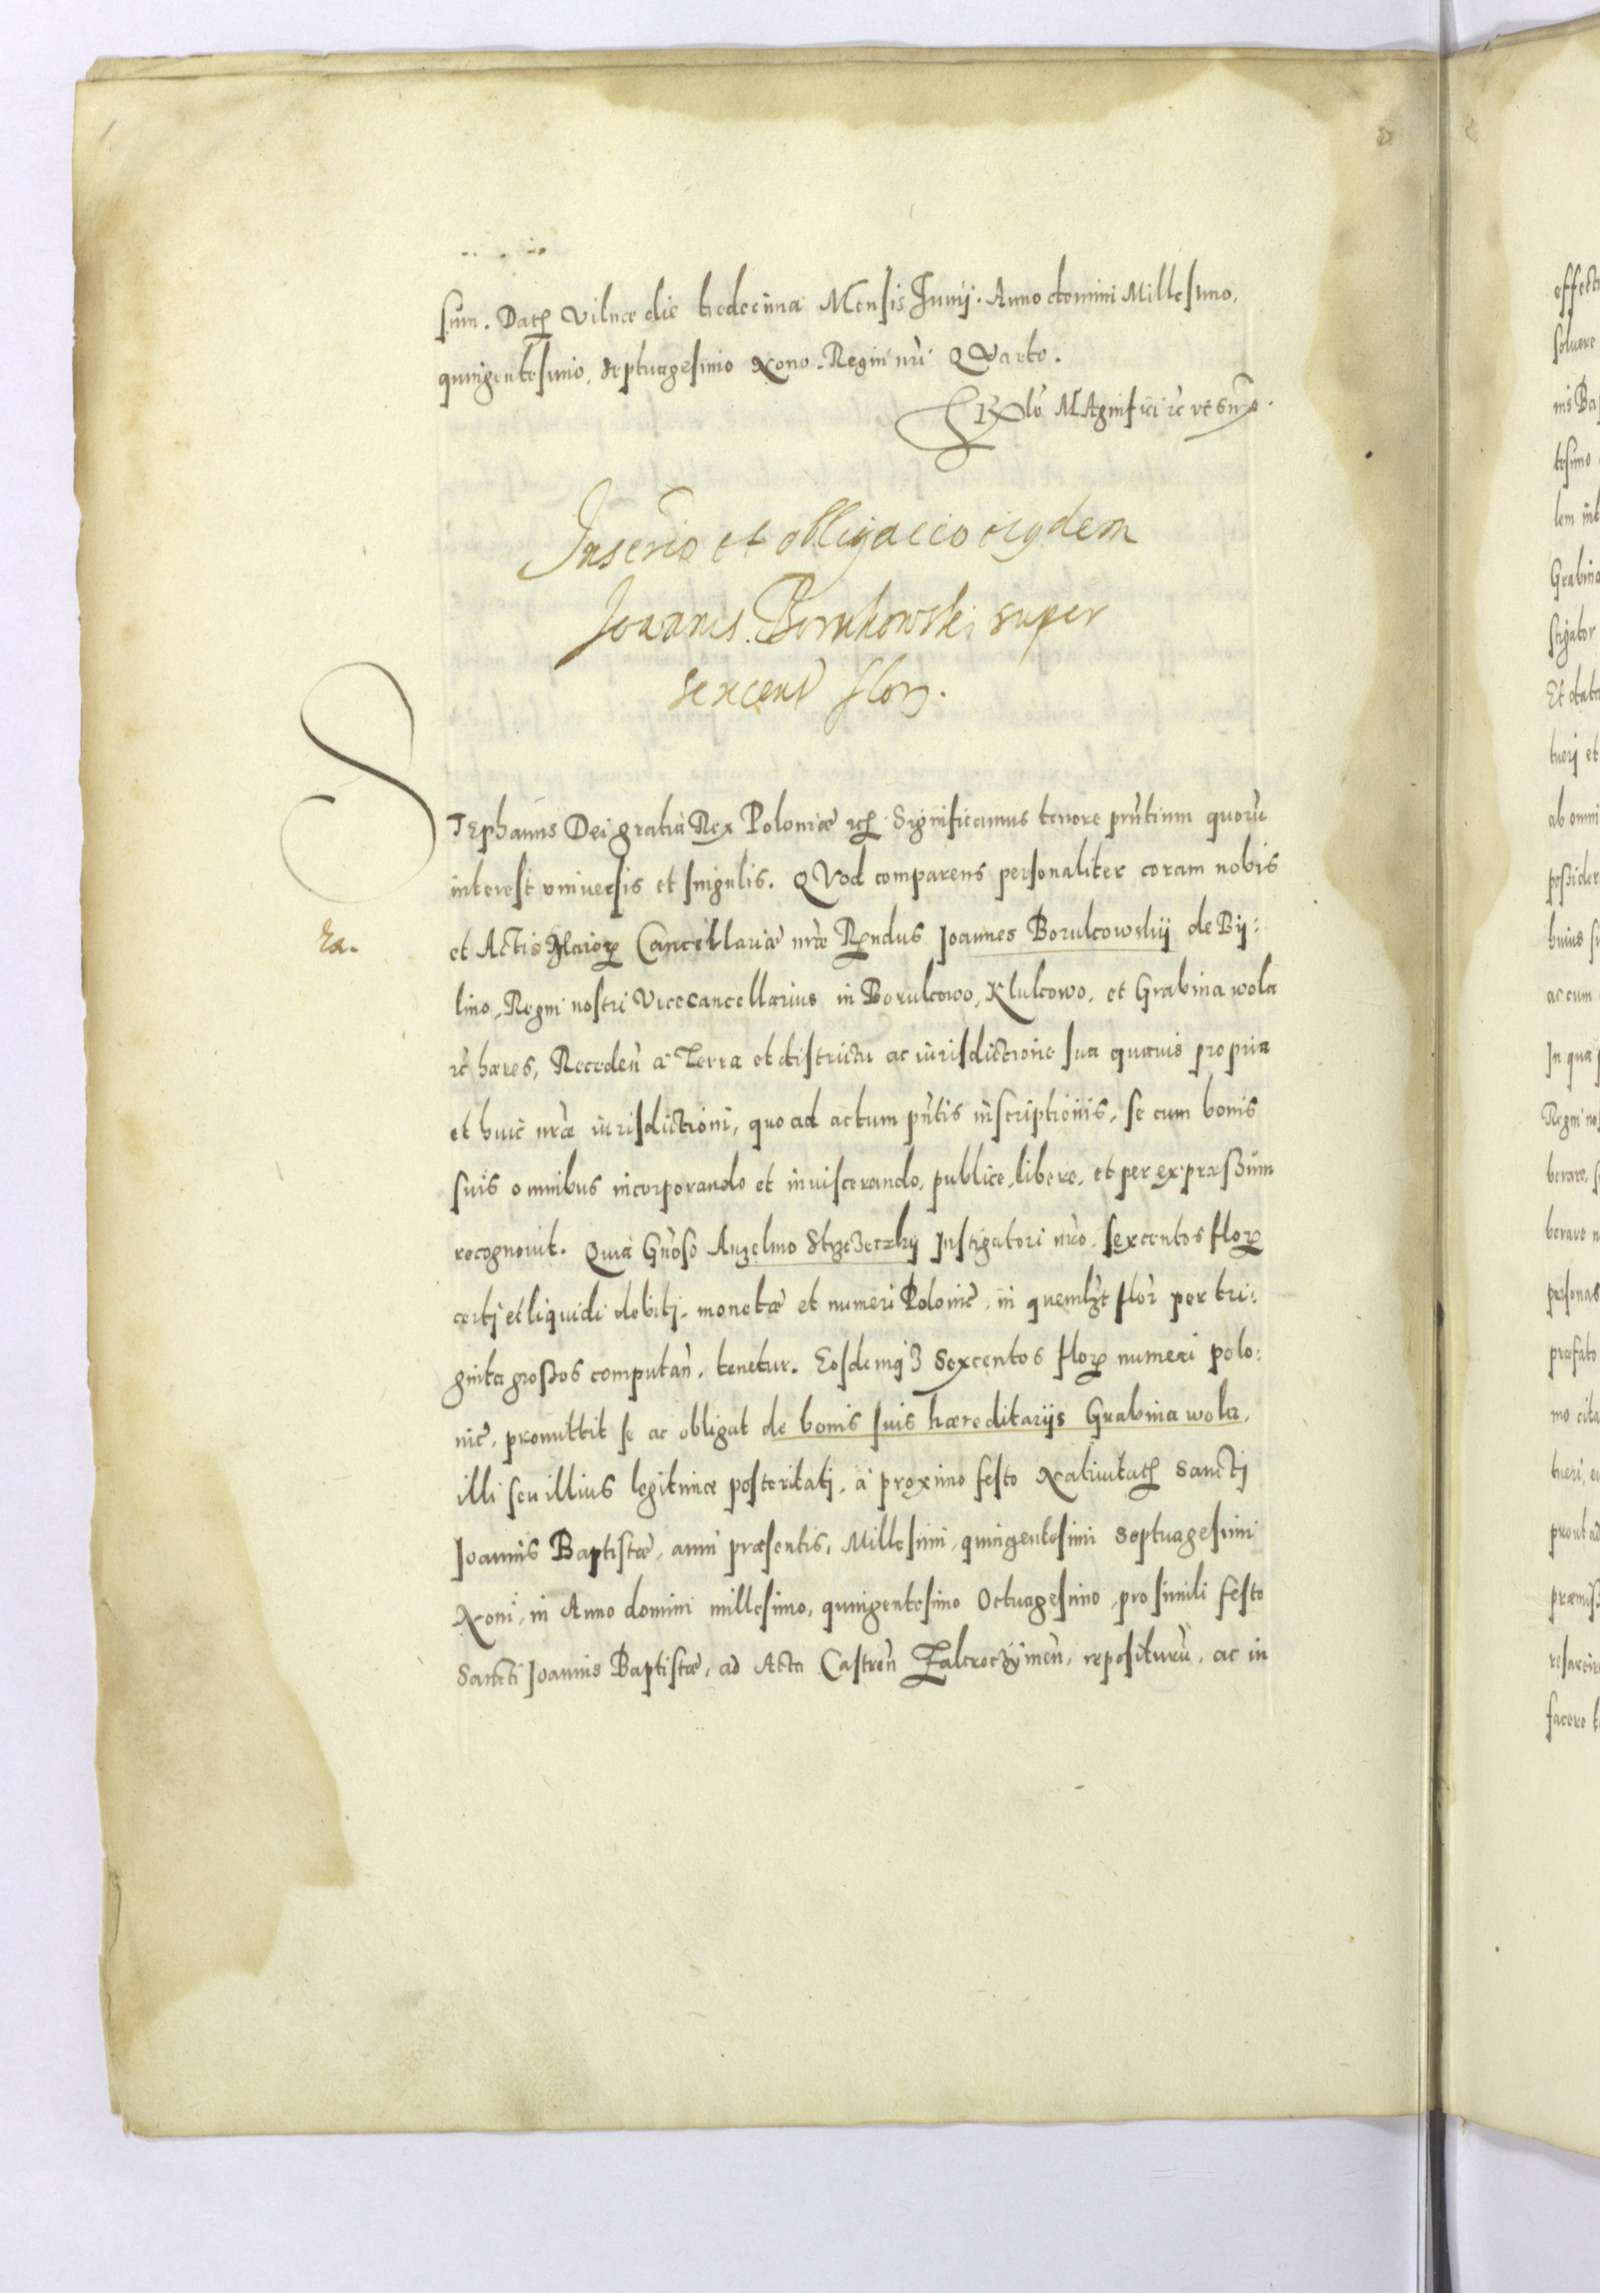 sum. Datꝭ Vilnæ die tredecima Mensis Junij. Anno domini Millesimo,
quingentesimo, septuagesimo Nono. Regni nri QVarto.
Magnifici rc vt sup.
Inscrio et obligacio eiusdem
Joannis Borukowski super
sexcent flor.
STephanus Dei gratia Rex Poloniæ rcꝭ Significamus tenore pntium quoru
interest vniuersis et singulis. QVod comparens personaliter coram nobis
Ra.
et Actis Maioꝝ Cancellariæ nræ Rndus Joannes Borukowskij de Bij:
lino, Regni nostri Vicecancellarius in Borukowo, Klukowo, et Grabina wola
rc hæres, Receden a Terra et districtu ac iurisdictione sua quauis propria
et huic nræ iurisdictioni, quo ad actum pntis inscriptionis, se cum bonis
suis omnibus incorporando et inuiscerando, publice, libere, et per expraeßum
recognouit. Quia Gnoso Anzelmo Instigatori nro sexcentos floꝝ
certj et liquidi debitj, monetæ et numeri Polonic, in quemlzt flor per tri:
ginta großos computan, tenetur. Eosdemqȝ Sexcentos floꝝ numeri polo:
nic, promittit se ac obligat de bonis suis hæreditarijs Grabina wola,
illi seu illius legitimæ posteritatj, a proximo festo Natiuitatꝭ Sanctj
Joannis Baptistæ, anni præsentis, Millesimi, quingentesimi Septuagesimi
Noni, in Anno domini millesimo, quingentesimo Octuagesimo, pro simili festo
Sancti Joannis Baptistæ, ad Acta Castren Zakroczijmen, repositurū, ac in